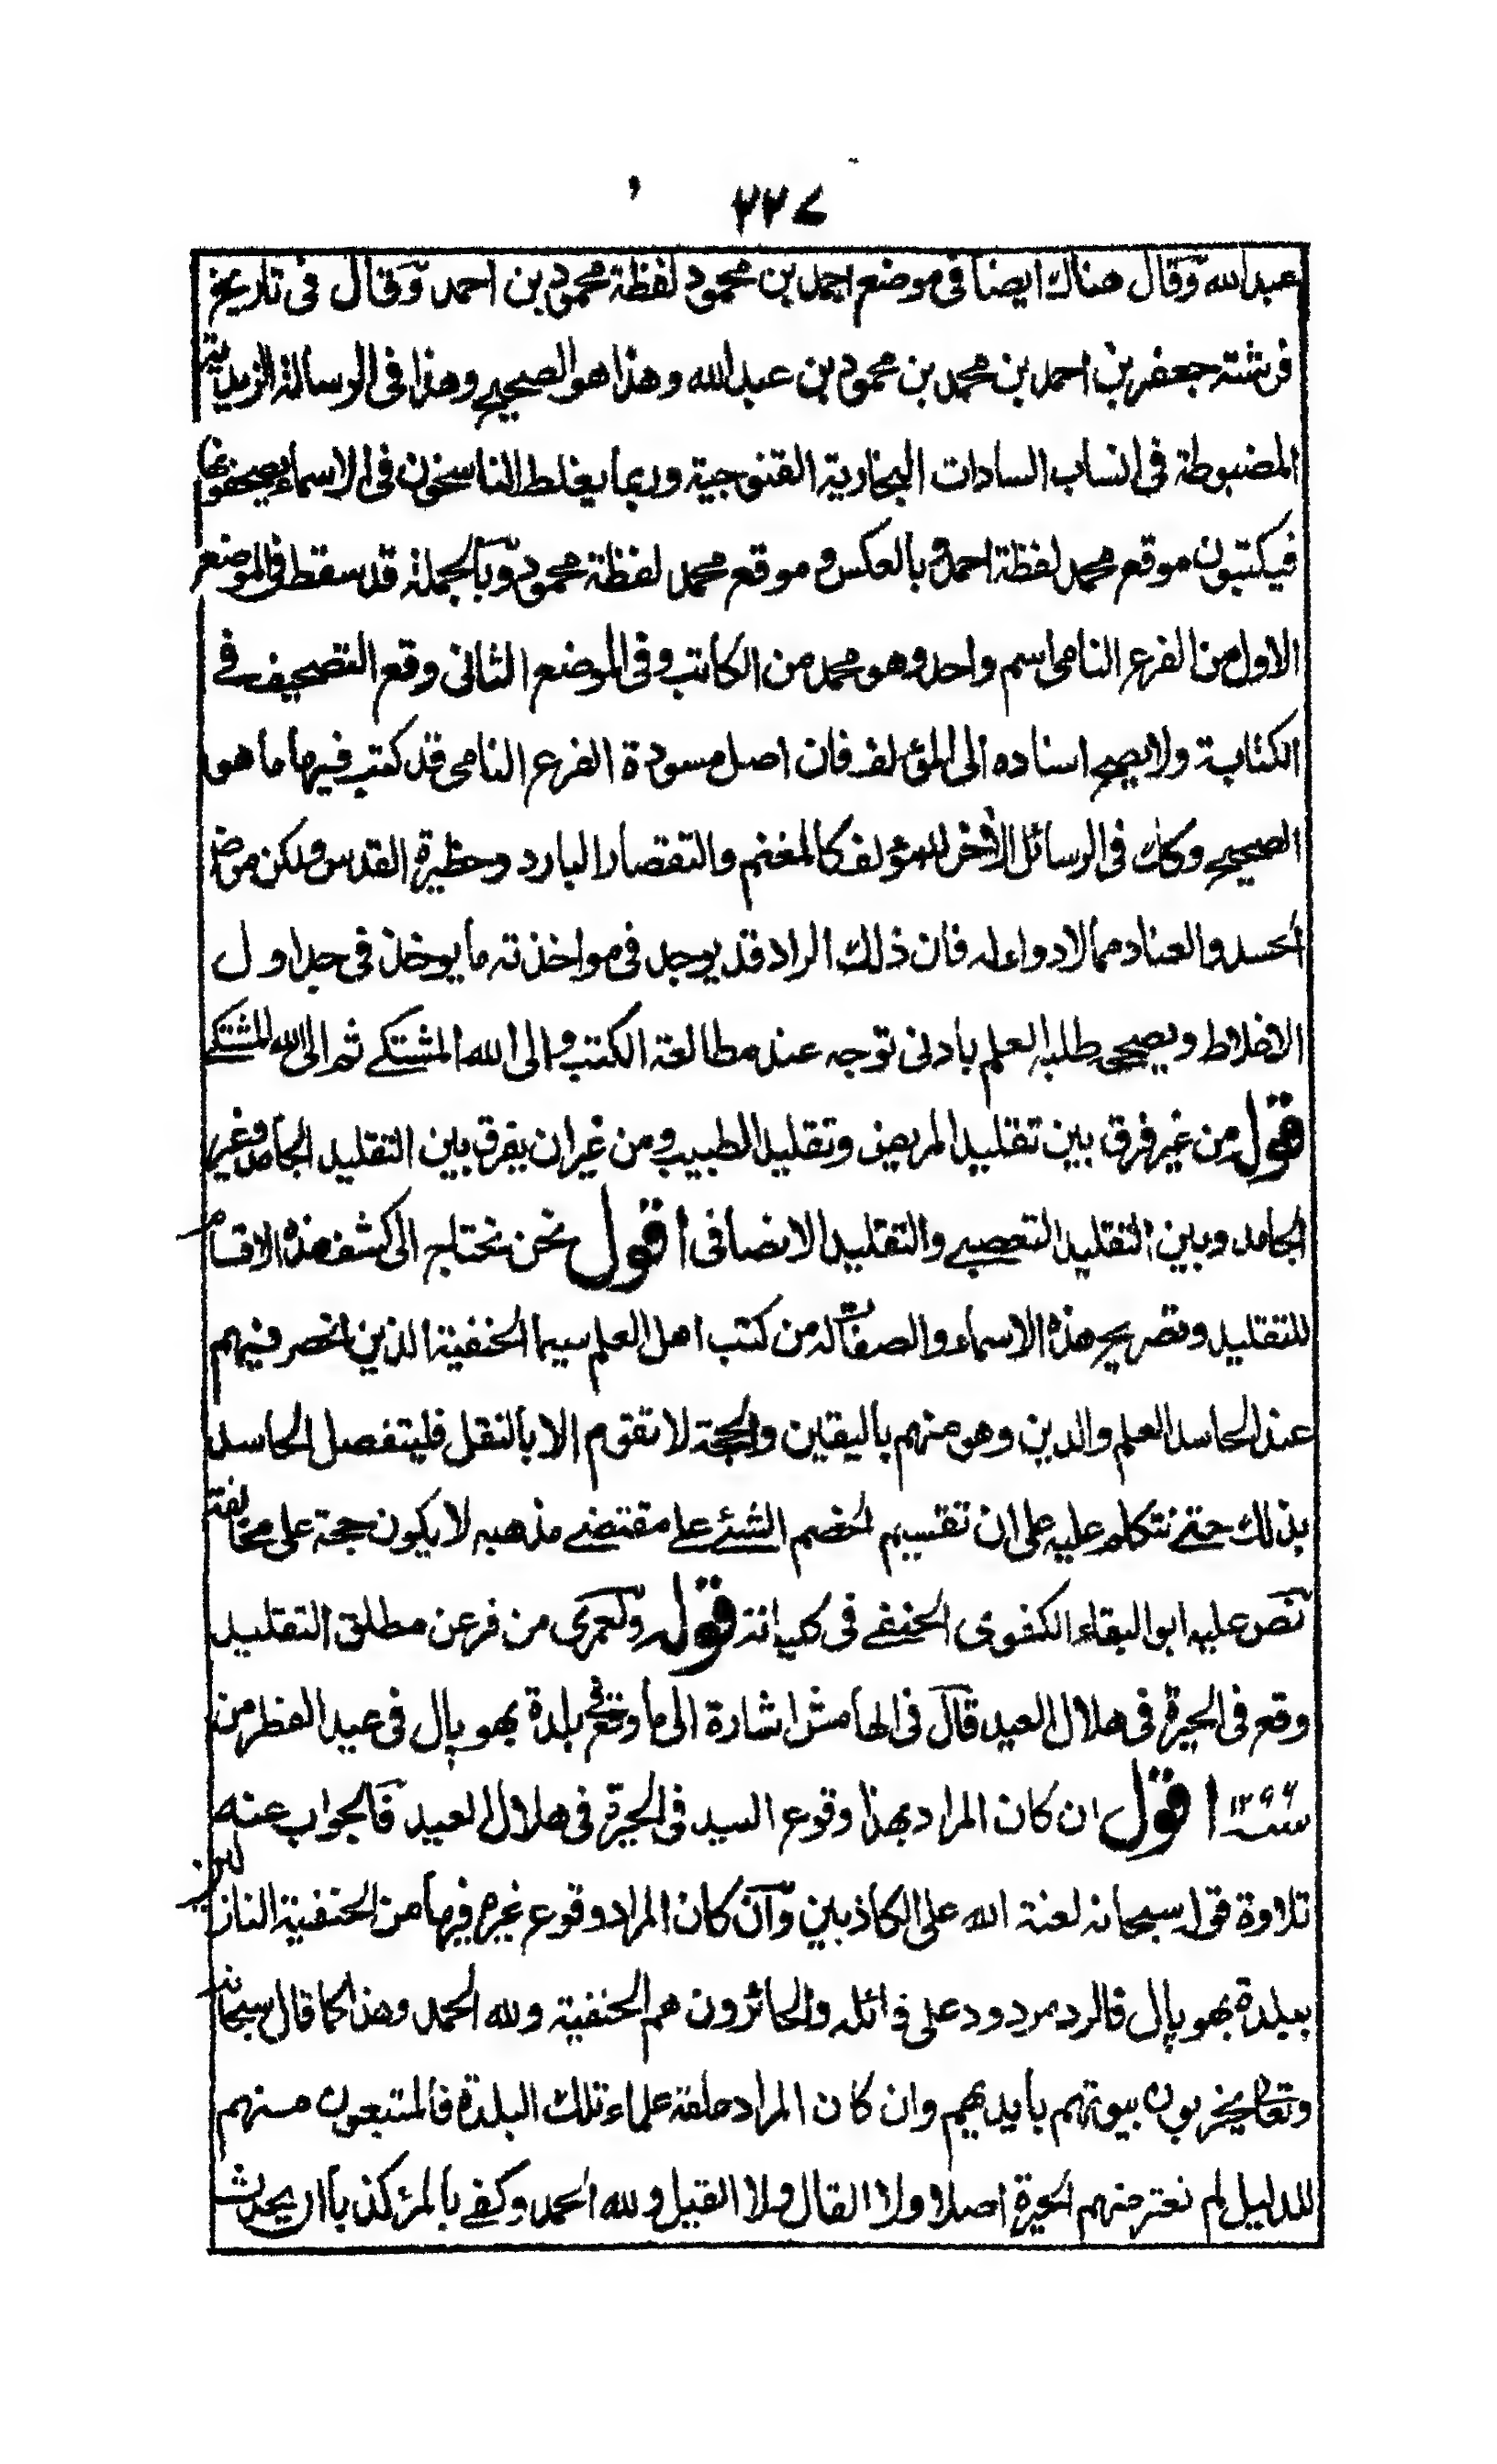 ٢٢٧
عبدالله وقال هناك ايضا في موضع احمد بن محمود لفظة محمود بن احمد وقال في تاريخ
فرشته جعفر بن احمد بن محمد بن محمود بن عبدالله وهذا هو الصحيح وهذا في الرسالة الزيدية
المضبوطة في انساب السادات البخارية القنوجية وربما يغلط الناسخون في الاسماء يصحفونها
فيكتبون موقع محمد لفظة احمد و بالعكس و موقع محمد لفظة محمود وبالجملة قد سقط في الموضع
الاول من الفرع النامى اسم واحد وهو محمد من الكاتب وفي الموضع الثانى وقع التصحيف في
الكتابة ولا يصح اسناده الى المؤلف فان اصل مسودة الفرع النامى قد كتب فيها ما هو
الصحيح وكان في الرسائل الأخر للمؤلف كالمغنم والتقصار البارد وحظيرة القدس ولكن مرض
الحسد والعناد مما لا دواء له فان ذلك الراد قد يوجد في مواخذته ما يوخذ في جداول
الاغلاط ويصححى طلبه العلم بادنى توجه عند مطالعة الكتب والى الله المشتكے ثم الى الله المشتكے
قوله من غير فرق بين تقليد المريض وتقليد الطبيب ومن غير ان يفرق بين التقليد الجامد وغير
الجامد وبين التقليد التعصبے والتقليد الانصافى اقول نحن نحتاج الى كشف هذه الاقسام
للتقليد وتصريح هذه الاسماء والصفات له من كتب اهل العلم سيما الحنفية الذين انحصر فيهم
عند الحاسد العلم والدين وهو منهم باليقين والحجة لا تقوم الا بالنقل فليتفضل الحاسد
بذلك حتے نتكلم عليه على ان تقسيم الخصم الشئ علے مقتضے مذهبه لا يكون حجة على مخالفته
نص عليه ابو البقاء الكفوى الحنفے في كلياته قوله ولعمرى من فر عن مطلق التقليد
وقع في الحيرة في هلال العيد قال في الهامش اشارة الى ما وقع في بلدة بهوپال في عيد الفطر من
سنه ١٢٩٩ اقول ان كان المراد بهذا وقوع السيد في الحيرة في هلال العيد فالجواب عنه
تلاوة قوله سبحانه لعنة الله على الكاذبين وان كان المراد وقوع غيره فيها من الحنفية النازلين
ببلدة بهوپال فالرد مردود على قائله والحائرون هم الحنفية ولله الحمد وهذا كما قال سبحانه
وتعالى يخربون بيوتهم بايديهم وان كان المراد علماء تلك البلدة فالمتبعون منهم
للدليل لم تعترمنهم الحيرة اصلا ولا القال ولا القيل ولله الحمد وكفے بالمرء كذبا ان يحدث